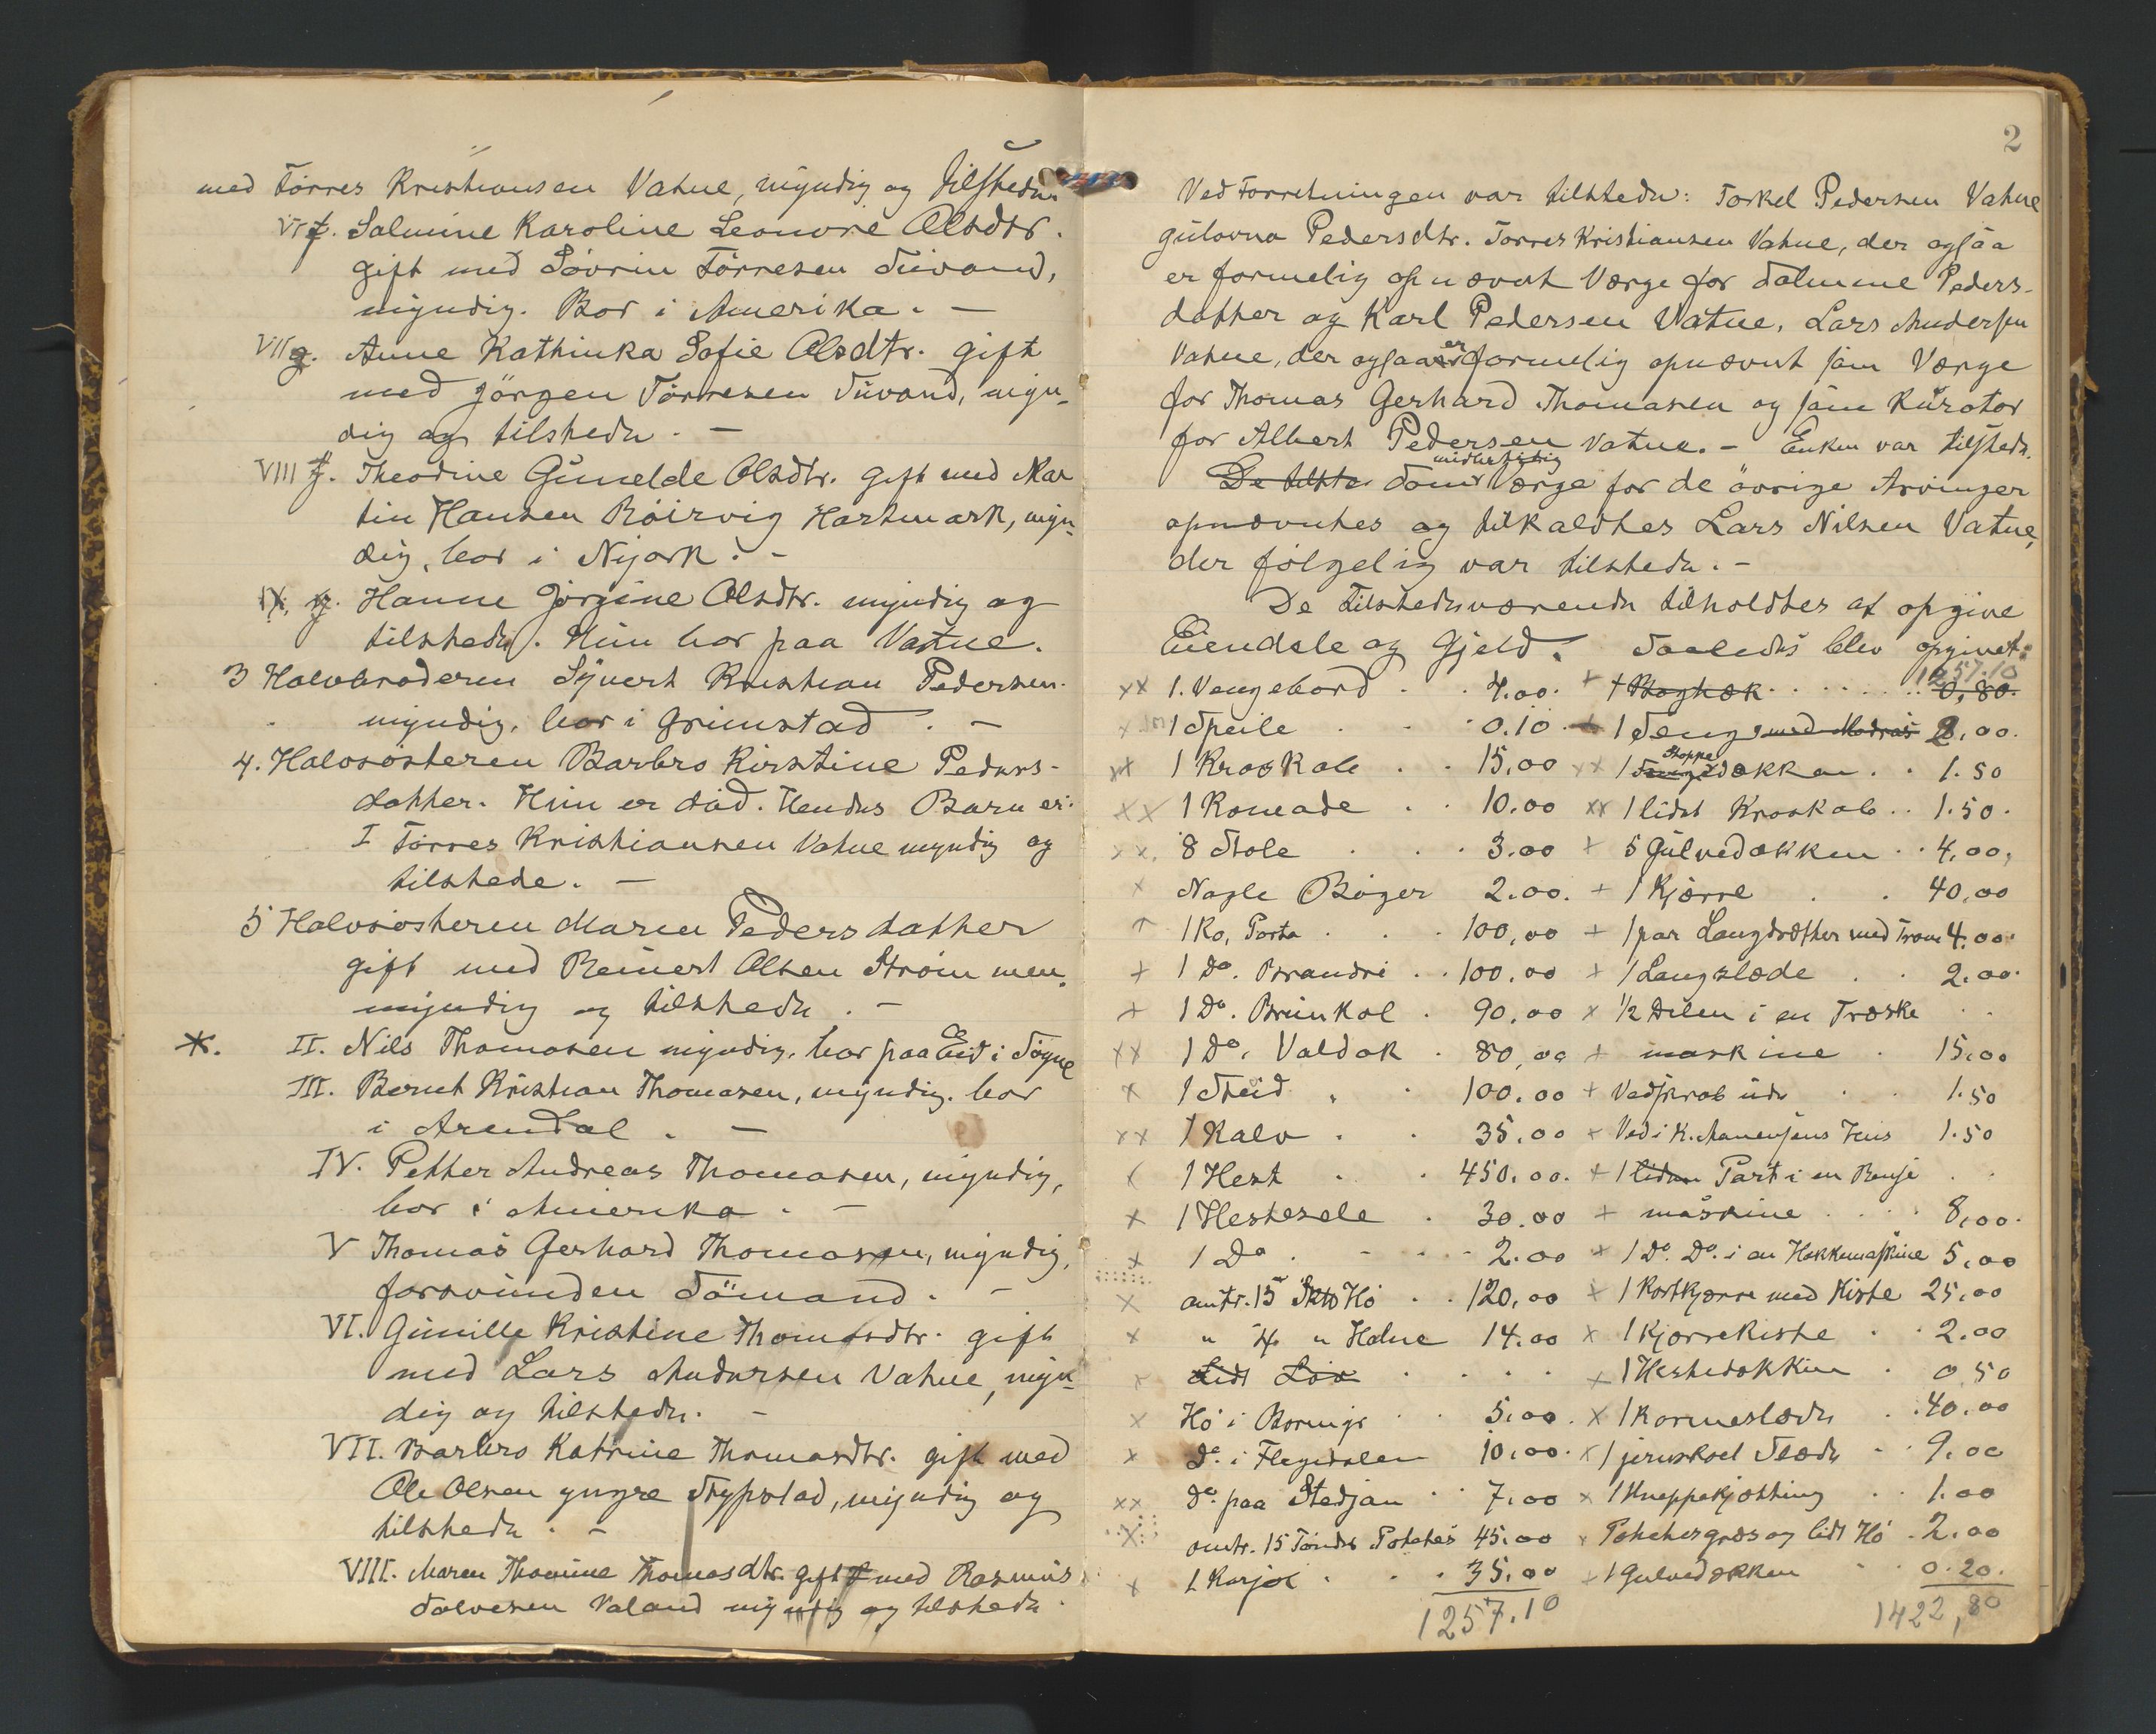 med Törres Kristiansen Vatne, myndig og tilstede
VI f. Salmine Karoline Leonore Olsdtr.
gift med Sövrin Törresen Tuvand,
myndig. Bor i Amerika. —
VII g. Anne Kathinka Sofie Olsdtr. gift
med Jörgen Törresen Tuvand, myn-
dig og tilstede. —
VIII f. Theodine Gunelde Olsdtr. gift med Mar
tin Hansen Röirvig Hartmark, myn-
dig, bor i Nijork. -
IX. g. Hanne Jörgine Olsdtr. myndig og
tilstede. Hun bor paa Vatne.
3 Halvbroderen Syvert Kristian Pedersen.
myndig, bor i Grimstad. —
4. Halvsösteren Barbro Kirstine Peders-
datter. Hun er död. Hendes Barn er:
I Törres Kristiansen Vatne myndig og
tilstede. —
5 Halvsösteren Maren Pedersdatter
gift med Reinert Olsen Ströimmen,
myndig og tilstede. —
*. II. Nils Thomasen myndig, bor paa Eid i Sögne
III. Bernt Kristian Thomasen, myndig. bor
i Arendal. —
IV. Petter Andreas Thomasen, myndig,
bor i Amerika. —
V Thomas Gerhard Thomasen, myndig,
forsvunden Sömand. —
VI. Gunille Kristine Thomasdtr. gift
med Lars Andersen Vatne, myn-
dig og tilstede. —
VII. Barbro Katrine Thomasdtr. gift med
Ole Olsen yngre Stypstad, myndig og
tilstede. —
VIII. Maren Thomine Thomasdtr. gift med Rasmus
Salvesen Valand myndig og tilstede.
2
Ved Forretningen var tilstede: Torkel Pedersen Vatne
Gulovna Pedersdtr. Torres Kristiansen Vatne, der ogsaa
er formelig opnævnt Værge for Salmine Peders-
datter og Karl Pedersen Vatne. Lars Andersen
Vatne, der ogsaa er formelig opnævnt som Værge
for Thomas Gerhard Thomasen og som Kurator
for Albert Pedersen Vatne. - Enken var tilstede.
De tilste Som midlertidig Værge for de övrige Arvinger
opnævntes og tilkaldtes Lars Nilsen Vatne,
der fölgelig var tilstede. -
De tilstedeværende tilholdtes at opgive
Eiendele og Gjeld. Saaledes blev opgivet:
1257.10
xx 1. Vengebord . . 4.00. + 1 Baghæk . . . 0,80.
1 Speile . . 0.10 + 1 Seng med Madras 2,00.
xx 1 Kroskab . . 15,00 xx 1 Stoppedækken . . 1.50
xx 1 Komade . . 10.00 xx 1 lidet Kroskab . . 1.50.
xx. 8 Stole . . 3.00 + 5 Gulvedækken . . 4,00,
x Nogle Böger 2.00. + 1 Kjærre . . 40,00
1 Ko, Porta . . 100,00 + 1 par Langdrætter med Trom 4.00
+ 1 Do. Brandri . . 100.00 + 1 Langslæde . . 2.00.
+ 1 Do. Brunkol . 90,00 x 1/2 Delen i en Træske . .
xx 1 Do. Valdok . 80,00 + maskine . 15,00
x 1 Stud . . 100.00 + Vedskrab ude . . 1.50
xx 1 Kalv . . 35.00 + Ved i K. Hus 1.50
1 Hest . . 450.00. + 1 liden Part i en Rense . .
x 1 Hestesele . 30.00 + maskine . . . 8,00.
x 1 Do . . . 2.00 + 1 Do. Do. i en Hakkemaskine 5,00
x omtr. 15 Skto Hö . . 120,00 + 1 Kostkjærre med Kiste 25,00
x " 4 " Halm 14.00 x 1 Kjærrekiste . . 2.00
x Lidt Löv . . . . x 1 Hestedækken . 0,50
x Hö i Boringe . . 5.00. x 1 Karmeslæde . . 40.00
x Do. i Flegedalen 10.00. x 1 jernskoet Slæde . . 9.00
xx Do. paa Stedjan . . 7.00 x 1 Kneppekjætting . . 1.00
x omtr. 15 Tönder Poteter 45.00 x Potetesgræs og lidt Hö . 2.00
x 1 Karjol . . . 35.00 + 1 Gulvedækken . . 0.20.
1257.10 1422,80